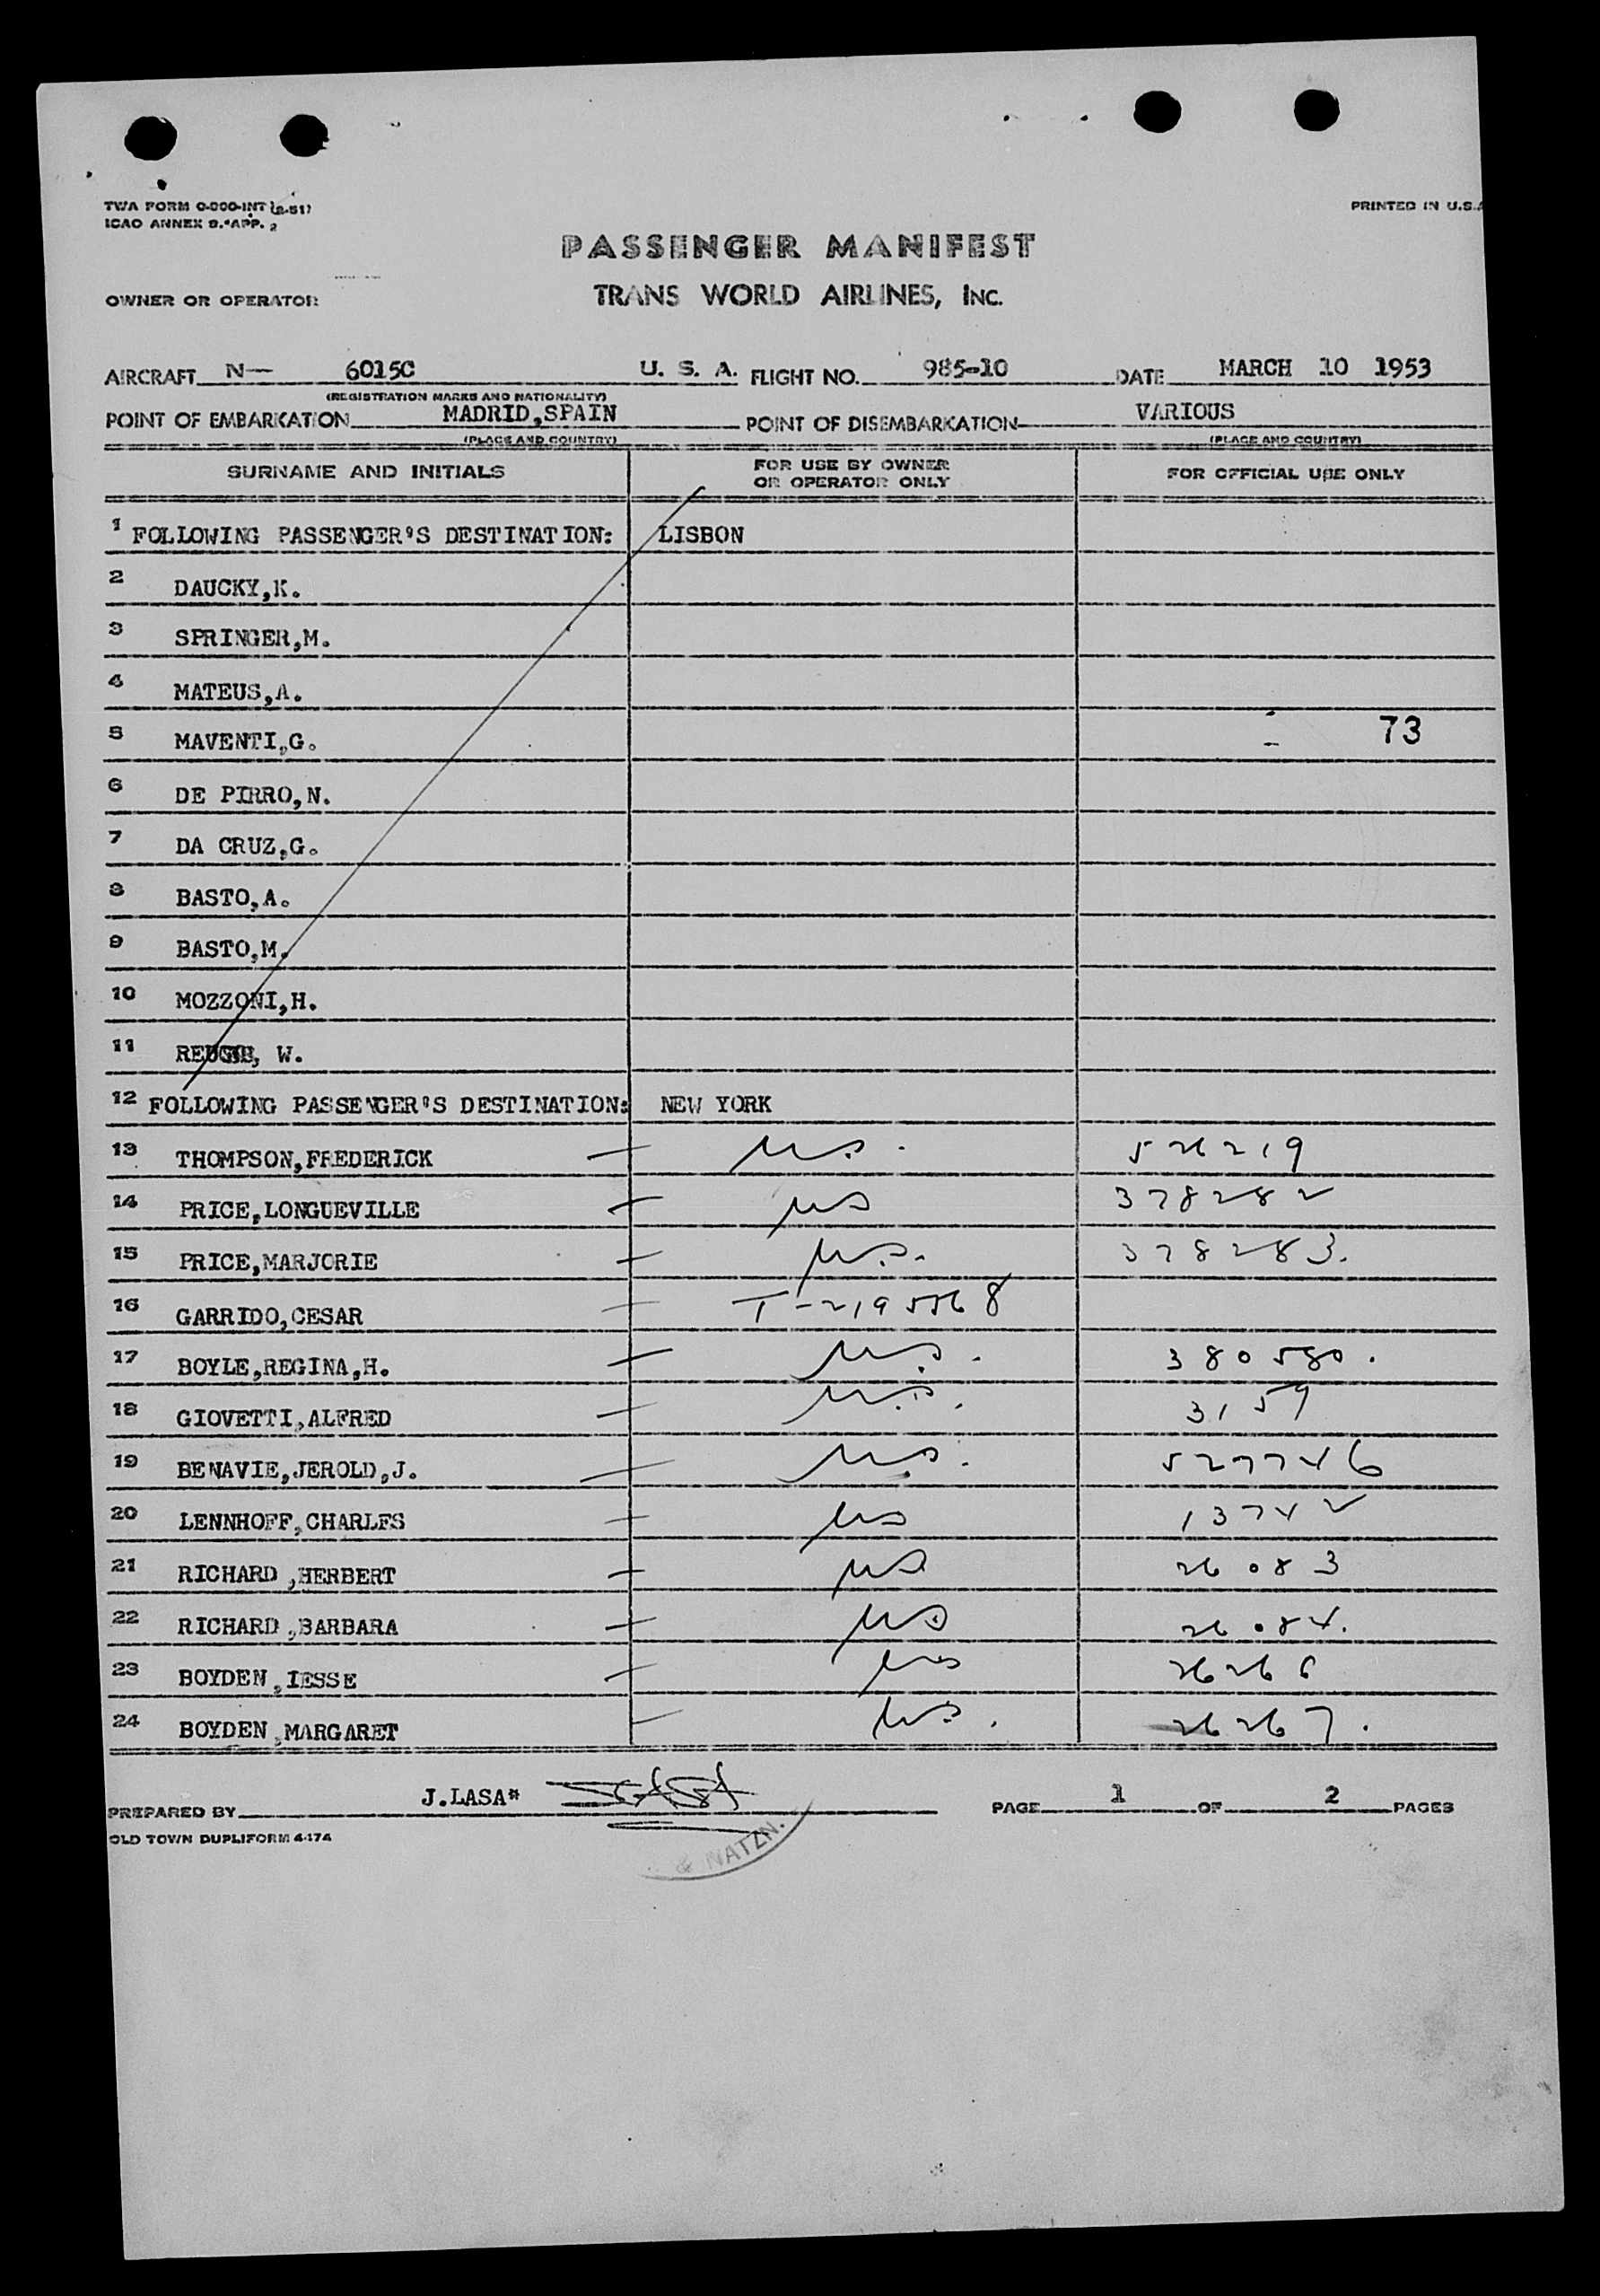 TWA FORM O-000-INT (2-51)
ICAO ANNEX 9. APP. 2
PRINTED IN U.S.A
PASSENGER MANIFEST
OWNER OR OPERATOR TRANS WORLD AIRLINES, INC.
AIRCRAFT N— 6015C U. S. A. FLIGHT NO. 985-10 DATE MARCH 10 1953
(REGISTRATION MARKS AND NATIONALITY)
POINT OF EMBARKATION MADRID,SPAIN POINT OF DISEMBARKATION VARIOUS
(PLACE AND COUNTRY) (PLACE AND COUNTRY)
SURNAME AND INITIALS FOR USE BY OWNER OR OPERATOR ONLY FOR OFFICIAL USE ONLY
1 FOLLOWING PASSENGER'S DESTINATION: LISBON
2 DAUCKY,K.
3 SPRINGER,M.
4 MATEUS,A.
5 MAVENTI,G. 73
6 DE PIRRO,N.
7 DA CRUZ,G.
8 BASTO,A.
9 BASTO,M.
10 MOZZONI,H.
11 W.
12 FOLLOWING PASSENGER'S DESTINATION: NEW YORK
13 THOMPSON,FREDERICK — US. 526219
14 PRICE,LONGUEVILLE — US 378282
15 PRICE,MARJORIE — U.S. 378283.
16 GARRIDO,CESAR — T-2195568
17 BOYLE,REGINA,H. — U.S. 380580.
18 GIOVETTI,ALFRED — U.S. 3159
19 BENAVIE,JEROLD,J. — U.S. 527746
20 LENNHOFF,CHARLES — US 13742
21 RICHARD,HERBERT — US 26083
22 RICHARD,BARBARA — US 26084.
23 BOYDEN,IESSE — US 26266
24 BOYDEN,MARGARET — U.S. 26267.
PREPARED BY J.LASA* PAGE 1 OF 2 PAGES
OLD TOWN DUPLIFORM 4-174
& NATZN.